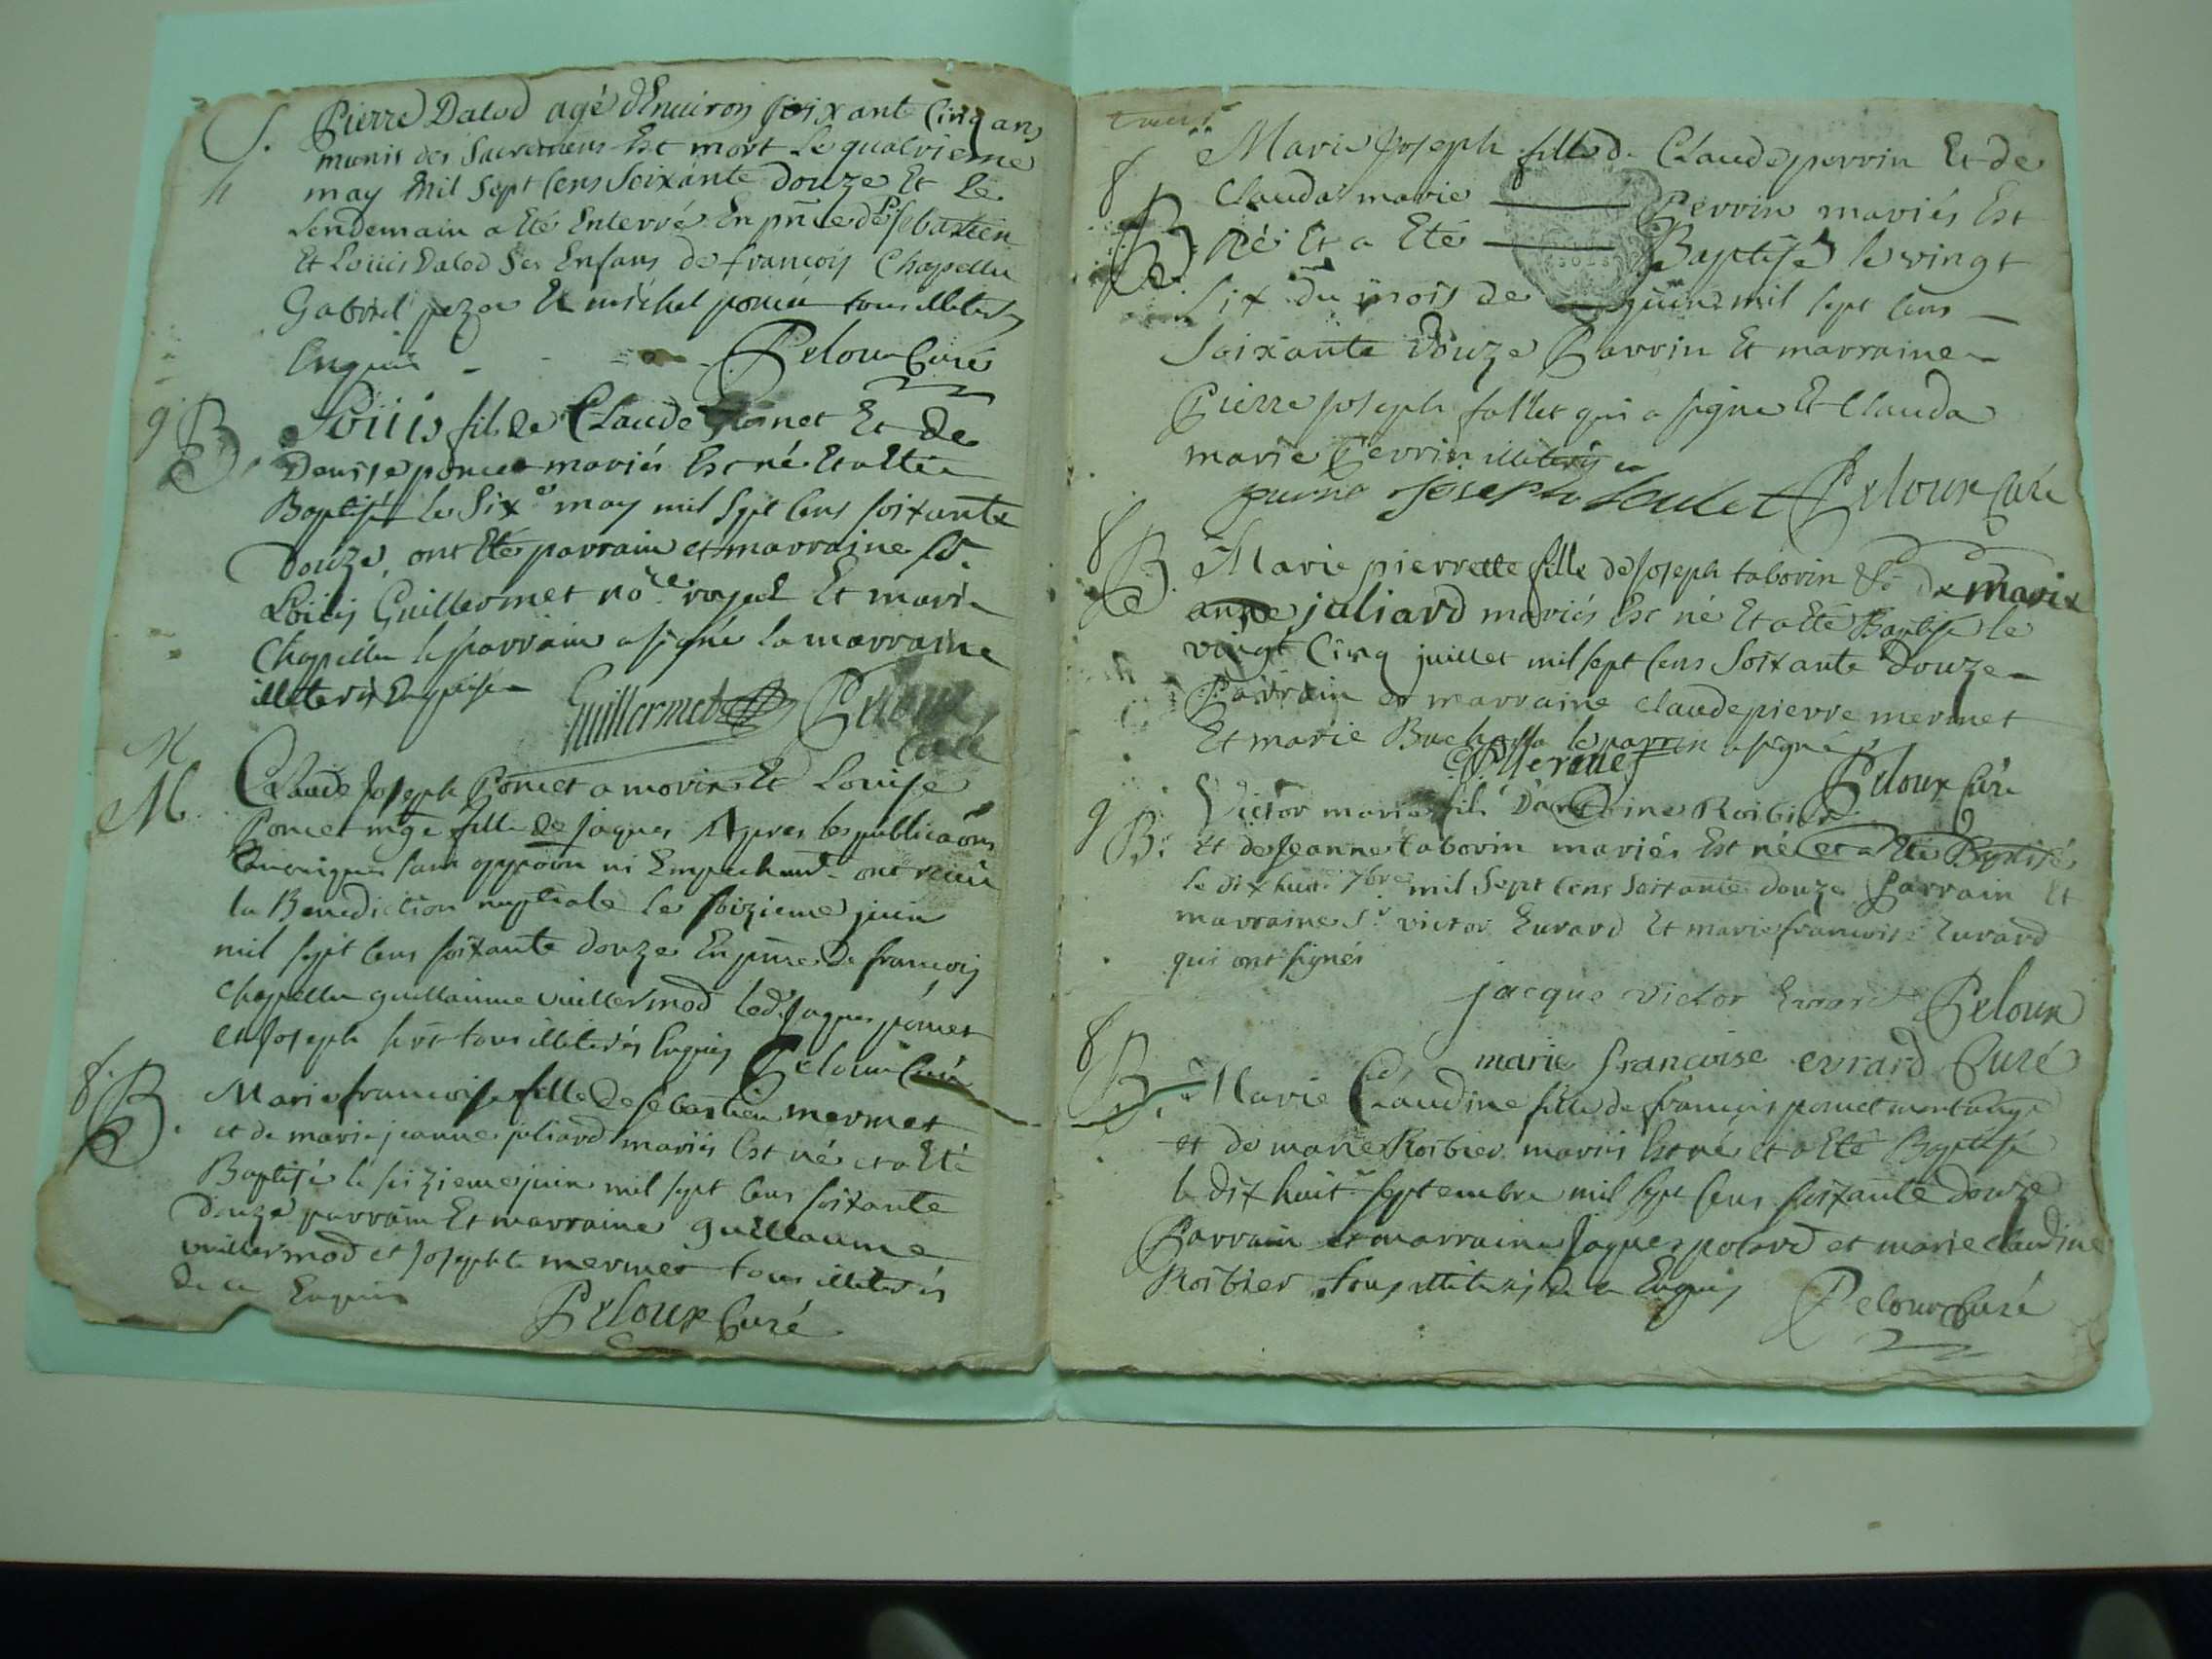 S. Pierre Dalod agé d'Environ soixante Cinq ans
munis des Sacremens Est mort le quatrieme
may mil sept cens soixante douze Et le
Lendemain a Eté Enterré En pnce de Sebastien
Et Louis Dalod ses Enfans de francois Chapellu
Gabriel Et michel poncet tous illiterés
Enquis Peloux Curé
g
B Loüis fils de Claude Et de
Denise poncet mariés Est né Et a Eté
Baptisé le Six may mil Sept cens soixante
douze, ont Eté parrain et marraine Sr.
Loüis Guillermet royal Et marie
Chapellu le parrain a signé la marraine
illiterée Enquise
Guillermet Peloux
Curé
M. Claude Joseph Poncet a morin Et Louise
Poncet fille de Jaques Apres les publicaōns
sans oppōon ni Empechemt. ont reçu
la Benediction nuptiale le seizieme juin
mil sept cens soixante douze En pnce de francois
Chapellu guillaume vuillermod led. Jaques poncet
et Joseph tous illiterés Enquis Peloux Curé
8
B. Marie francoise fille de Sebastien mermet
et de marie jeanne juliard mariés Est né et a Eté
Baptisé le seizieme juin mil sept cens soixante
douze parrain Et marraine guillaume
vuillermod et Josephte mermet tous illiterés
de ce Enquis
Peloux Curé
Marie Joseph fille de Claude perrin Et de
8
B. Clauda marie Perrin mariés Est
né Et a Eté Baptisé le vingt
Six du mois de juin mil sept cens
Soixante douze Parrin Et marraine
Pierre Joseph follet qui a signé Et Clauda
marie Perrin illiterée
pierre Joseph Peloux Curé
8
B. Marie pierrette fille de Joseph taborin Et de marie
anne juliard mariés Est né Et a Eté Baptisé le
vingt Cinq juillet mil sept cens soixante douze
Parrain et marraine claude pierre mermet
Et marie le parrin a signé
CP Mermet Peloux Curé
g
B. Victor marie fils D'antoine Roibier
Et de Jeanne taborin mariés Est né et a Eté Baptisé
le dix huit 7bre mil Sept cens soixante douze Parrain Et
marraine Sr. victor Euvard Et marie francoise Euvard
qui ont signés
jacque victor Evrard Peloux
marie francoise evrard Curé
8
B. Marie Claudine fille de francois poncet montange
et de marie Roibier mariés Est né et a Eté Baptisé
le dix huit septembre mil sept cens soixante douze
Parrain et marraine Jaques polard et marie claudine
Roibier tous illiterés de ce Enquis Peloux Curé